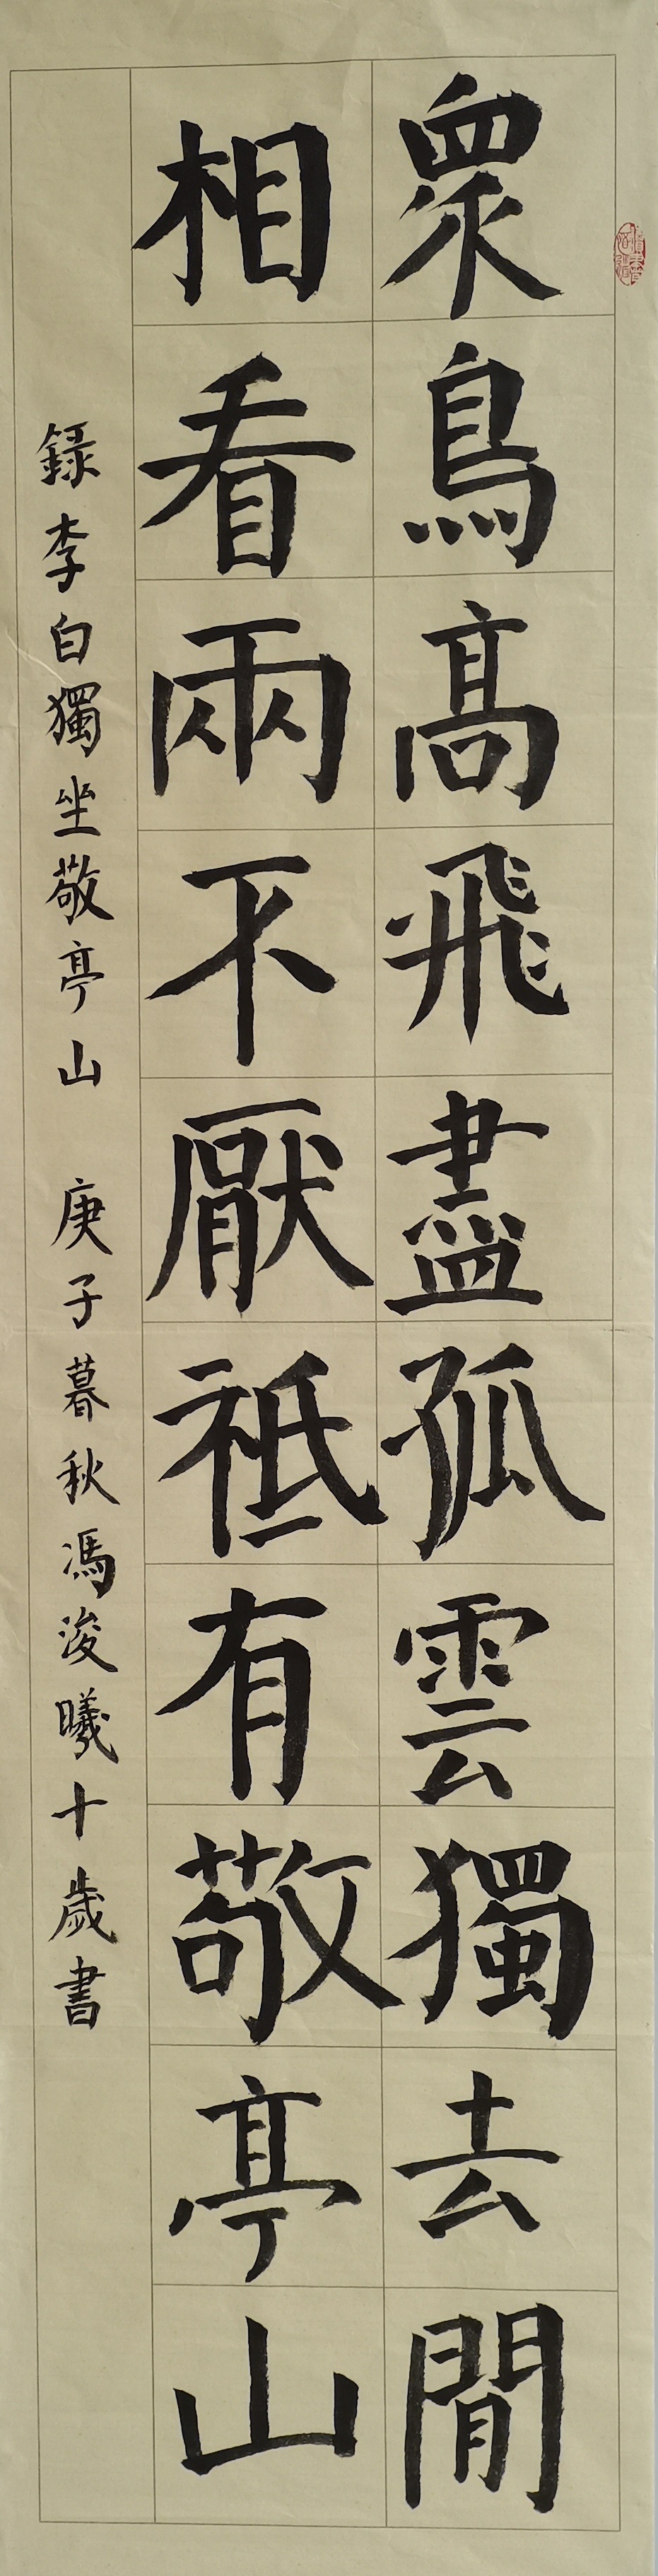 眾鳥高飛盡孤雲獨去閒
相看兩不厭祗有敬亭山
録李白獨坐敬亭山 庚子暮秋馮浚曦十歲書